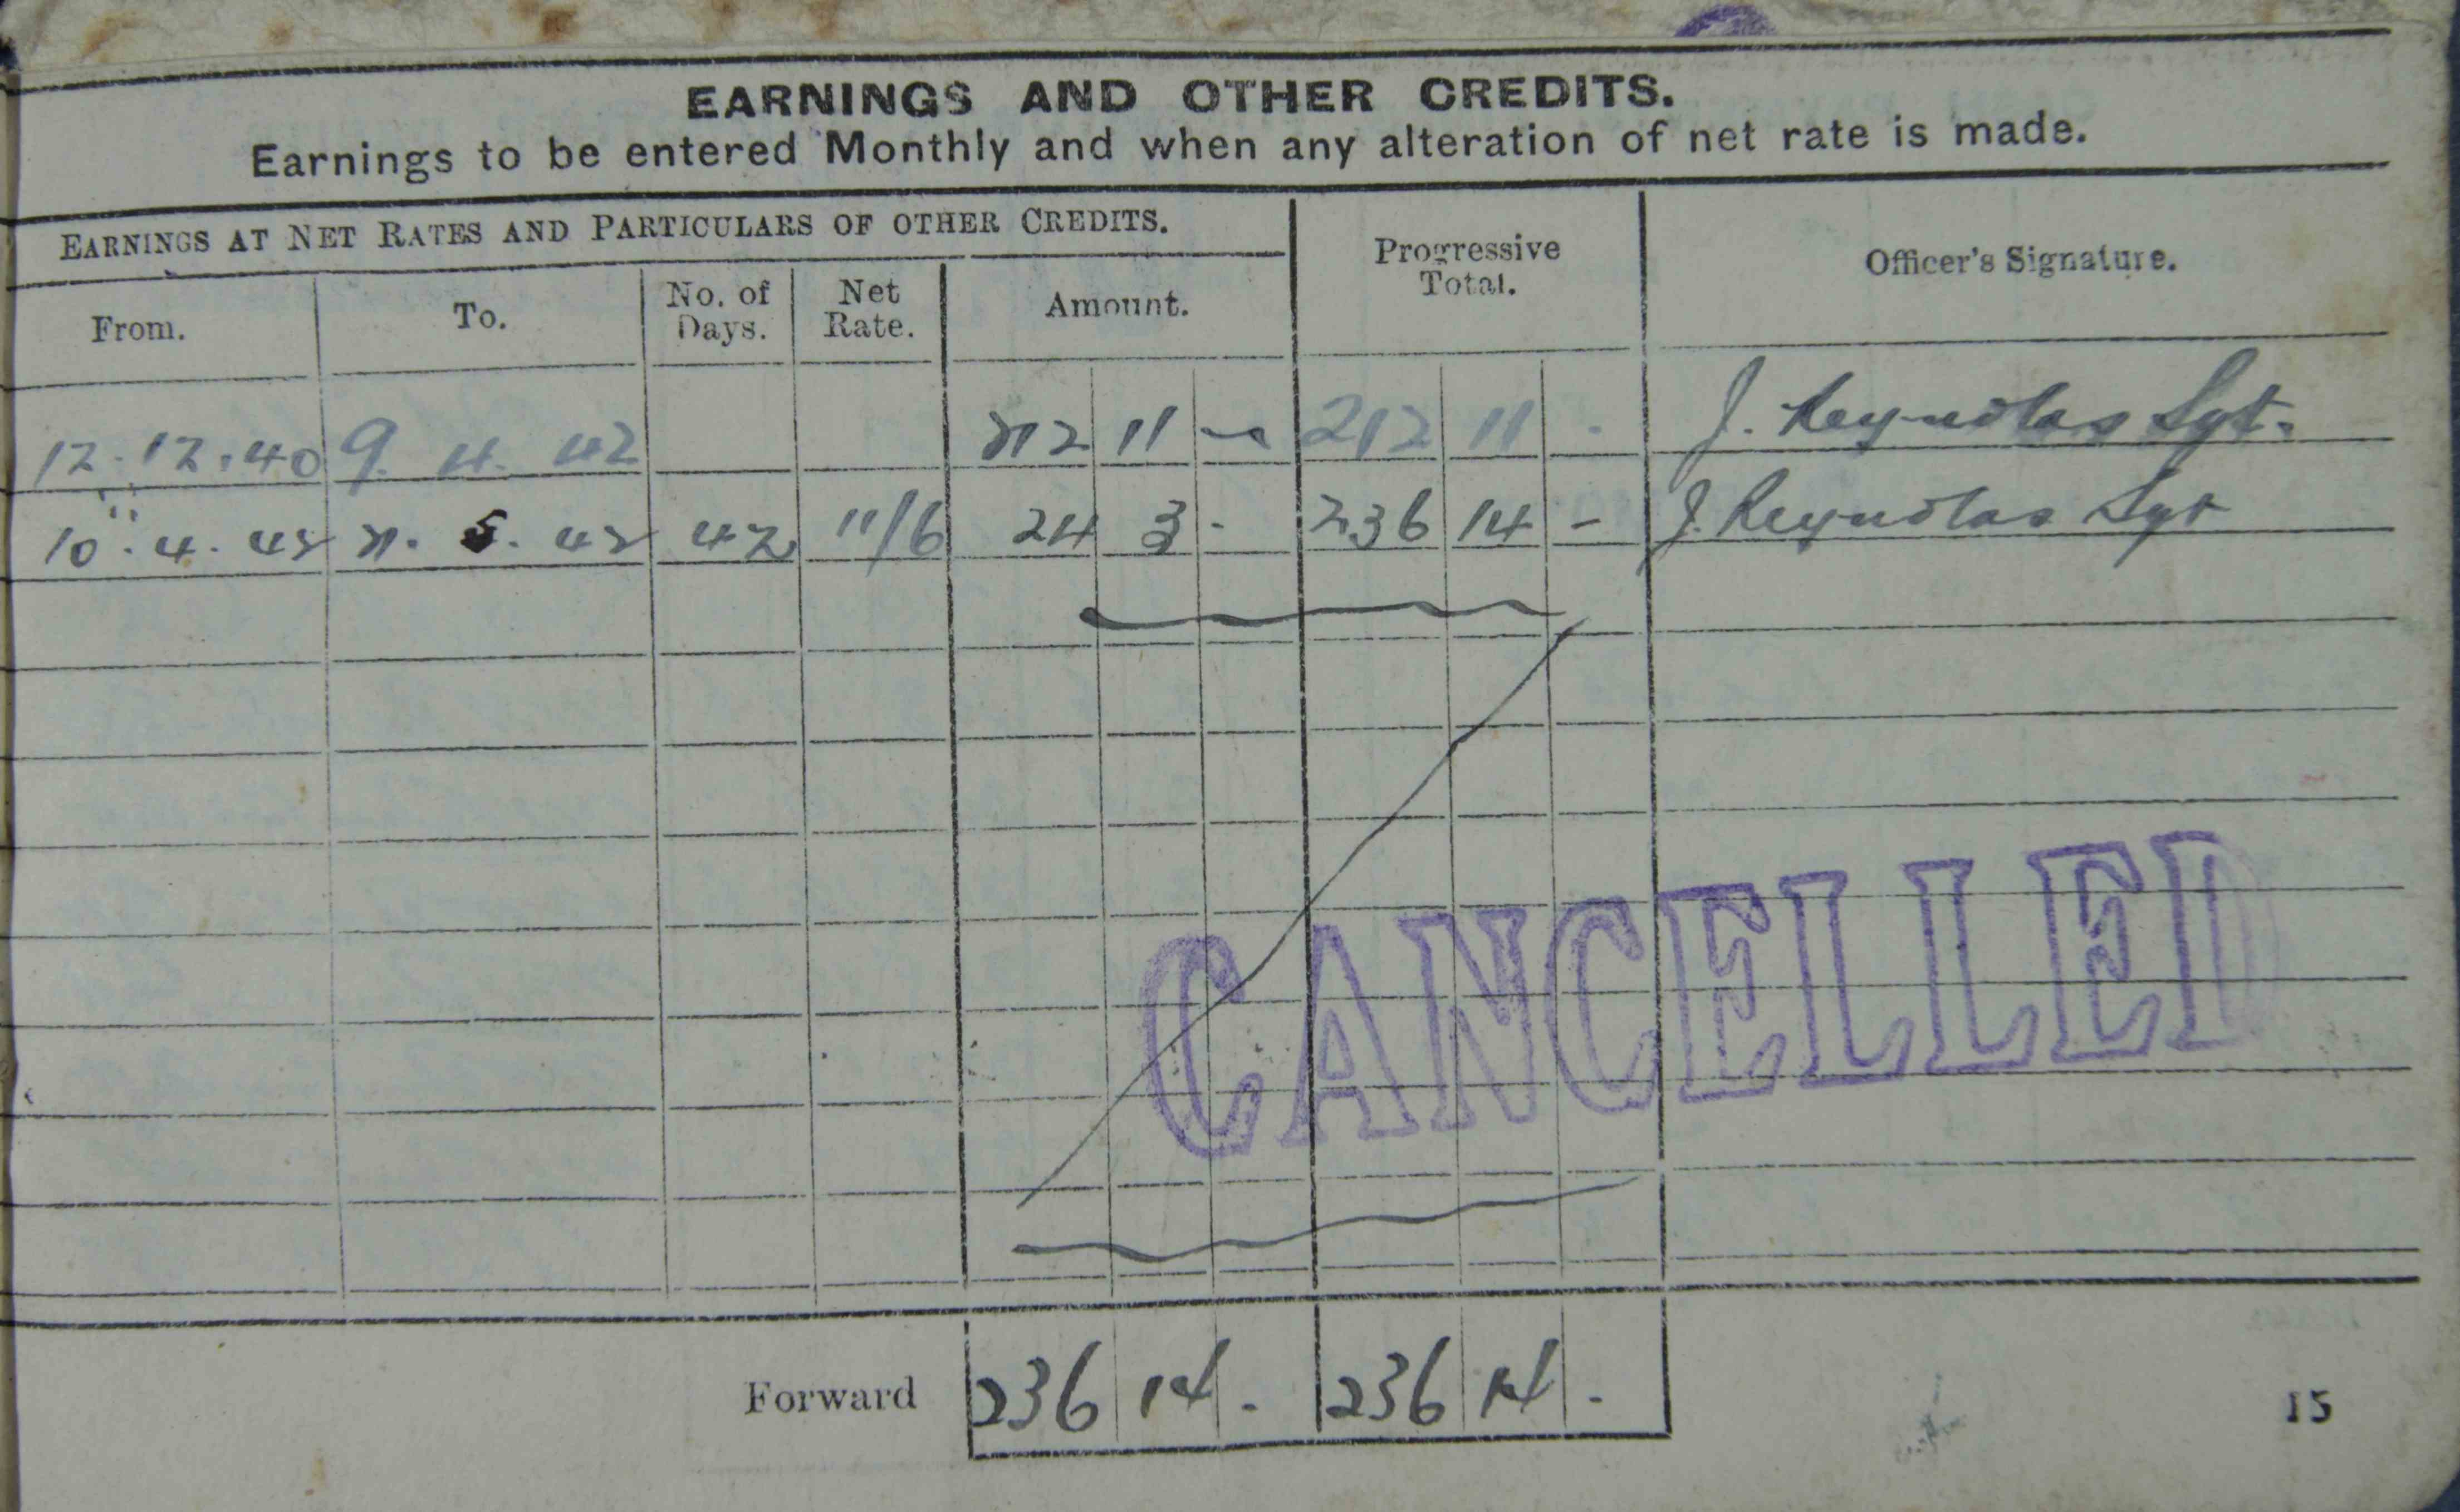 EARNINGS AND OTHER CREDITS.
Earnings to be entered Monthly and when any alteration of net rate is made.
EARNINGS AT NET RATES AND PARTICULARS OF OTHER CREDITS.
Progressive Total.
Officer's Signature.
From. To. No. of Days. Net Rate. Amount.
12.12.40 9.4.42 212 11 - 212 11 - J. Reynolds Sgt.
10.4.42 21.5.42 42 11/6 24 3 - 236 14 - J. Reynolds Sgt
CANCELLED
Forward 236 14 - 236 14 -
15